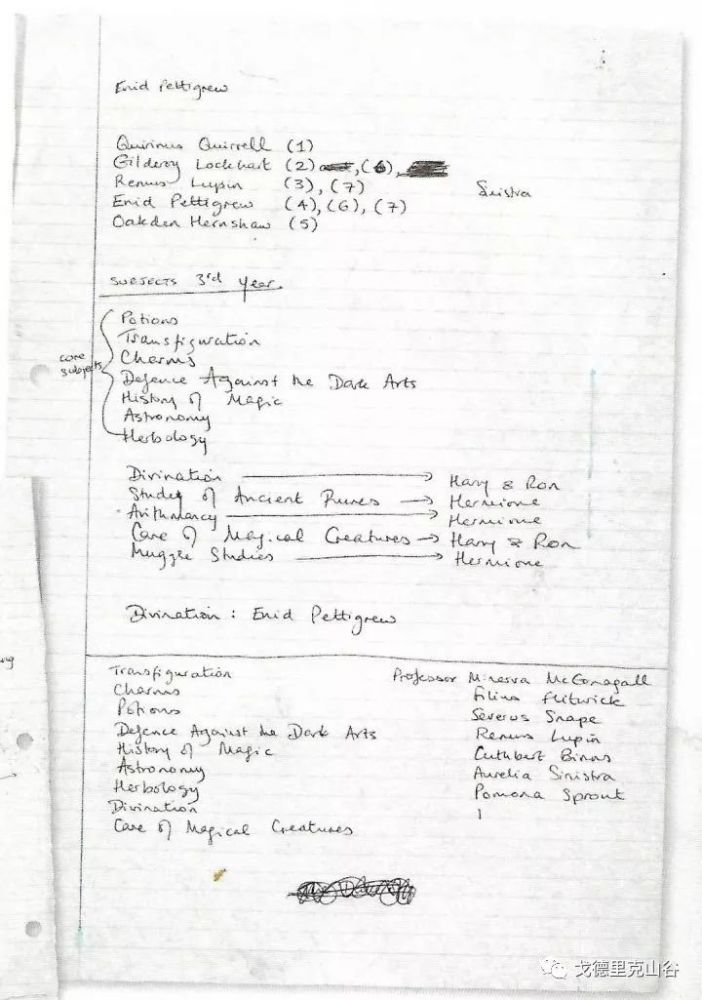 Enid Pettigrew
Quirinus Quirrell (1)
Gilderoy Lockhart (2) , (6),
Remus Lupin (3), (7)
Sinistra
Enid Pettigrew (4), (6), (7)
Oakden Hernshaw (5)
SUBJECTS 3rd year.
core subjects
Potions
Transfiguration
Charms
Defence Against the Dark Arts
History of Magic
Astronomy
Herbology
Divination → Harry & Ron
Study of Ancient Runes → Hermione
Arithmancy → Hermione
Care of Magical Creatures → Harry & Ron
Muggle Studies → Hermione
Divination : Enid Pettigrew
Transfiguration Professor Minerva McGonagall
Charms Filius Flitwick
Potions Severus Snape
Defence Against the Dark Arts Remus Lupin
History of Magic Cuthbert Binns
Astronomy Aurelia Sinistra
Herbology Pomona Sprout
Divination
Care of Magical Creatures
戈德里克山谷